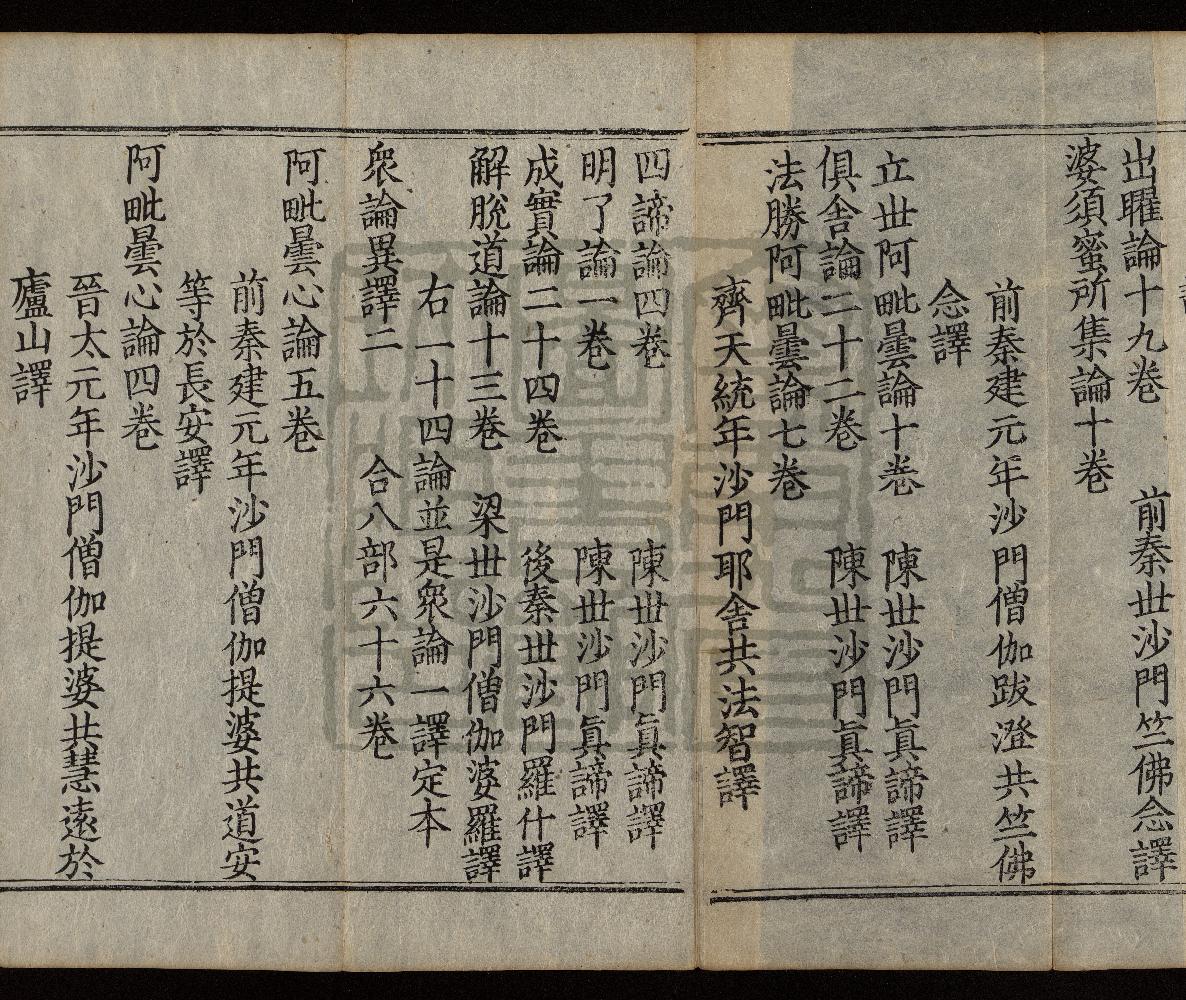 出曜論十九卷　前秦世沙門竺佛念譯
婆須蜜所集論十卷
前秦建元年沙門僧伽跋澄共竺佛
念譯
立世阿毗曇論十卷　陳世沙門真諦譯
俱舍論二十二卷　陳世沙門真諦譯
法勝阿毗曇論七卷
齊天統年沙門耶舍共法智譯
四諦論四卷　陳世沙門真諦譯
明了論一卷　陳世沙門真諦譯
成實論二十四卷　後秦世沙門羅什譯
解脫道論十三卷　梁世沙門僧伽婆羅譯
右一十四論並是眾論一譯定本
眾論異譯二　合八部六十六卷
阿毗曇心論五卷
前秦建元年沙門僧伽提婆共道安
等於長安譯
阿毗曇心論四卷
晉太元年沙門僧伽提婆共慧遠於
廬山譯